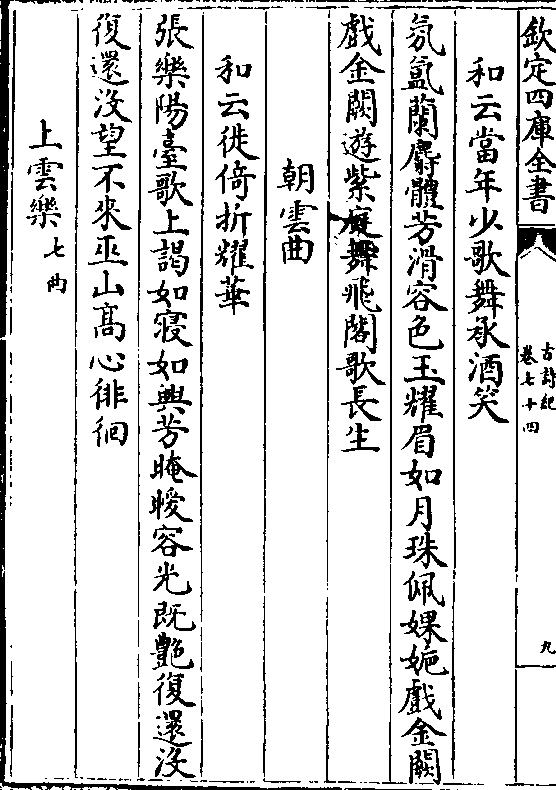 欽定四庫全書
古詩紀
卷七十四
九
和云當年少歌舞承酒笑
氛氳蘭麝體芳滑容色玉耀眉如月珠佩婐㚰戲金闕
戲金闕遊紫庭舞飛閣歌長生
朝雲曲
和云徙倚折耀華
張樂陽臺歌上謁如寢如興芳晻曖容光既艷復還沒
復還沒望不來巫山高心徘徊
上雲樂七曲